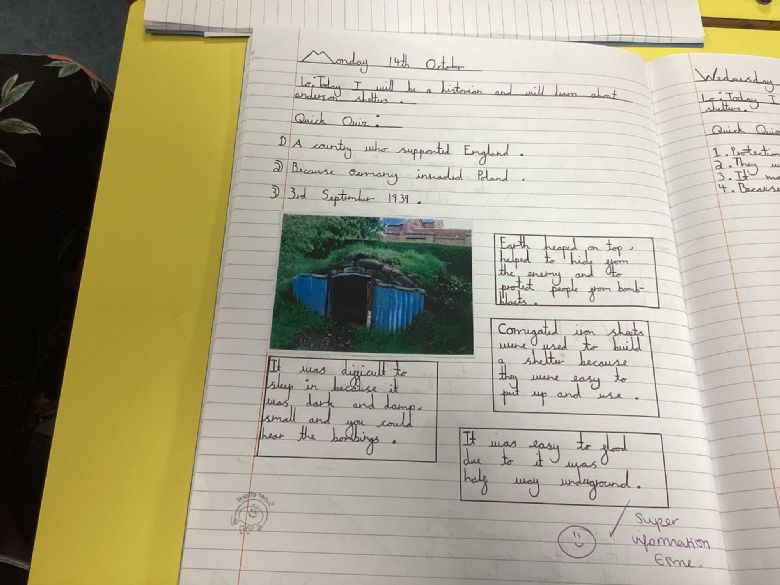 Monday 14th October
Lo: Today I will be a historian and will learn about
anderson shelters.
Quick Quiz:
1) A country who supported England.
2) Because Germany invaded Poland.
3) 3rd September 1939.
Earth heaped on top,
helped to hide from
the enemy and to
protect people from bomb
blasts.
Corrugated iron sheets
were used to build
a shelter because
they were easy to
put up and use.
It was difficult to
sleep in because it
was dark and damp,
small and you could
hear the bombings.
It was easy to flood
due to it was
half way underground.
Super
information
Esme.
Wednesday
Lo: Today I
shelters.
Quick Quiz
1. Protection
2. They
3. It
4. Because